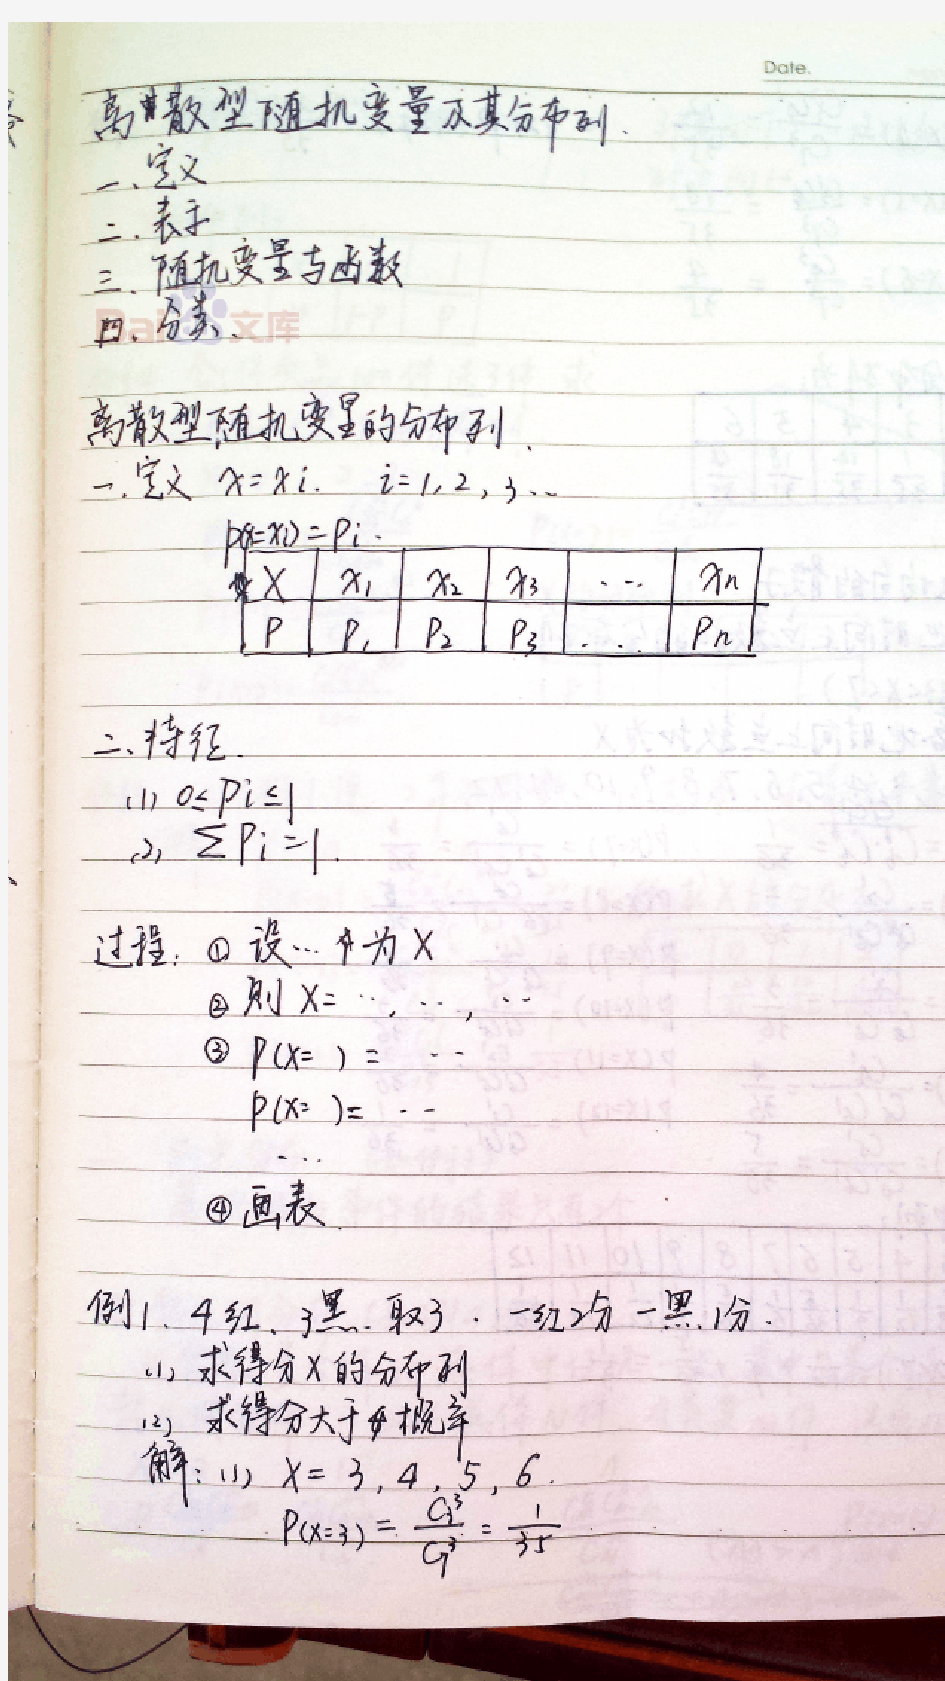 Date.
离散型随机变量及其分布列.
一、定义
二、表示
三、随机变量与函数
四、分类、
Bai 文库
离散型随机变量的分布列.
一、定义 x=xi. i=1,2,3…
p(x=xi)=Pi.
X x1 x2 x3 … xn
P P1 P2 P3 … Pn
二、特征.
(1) 0≤Pi≤1
(2) ΣPi=1.
过程: ① 设… 为X
② 则 X= …, …, …
③ P(X= ) = …
P(X= )= …
…
④ 画表.
例1. 4红、3黑.取3. 一红2分 一黑1分.
(1) 求得分X的分布列
(2) 求得分大于 概率
解: (1) X= 3, 4, 5, 6.
P(X=3) = C₃³/C₇³ = 1/35